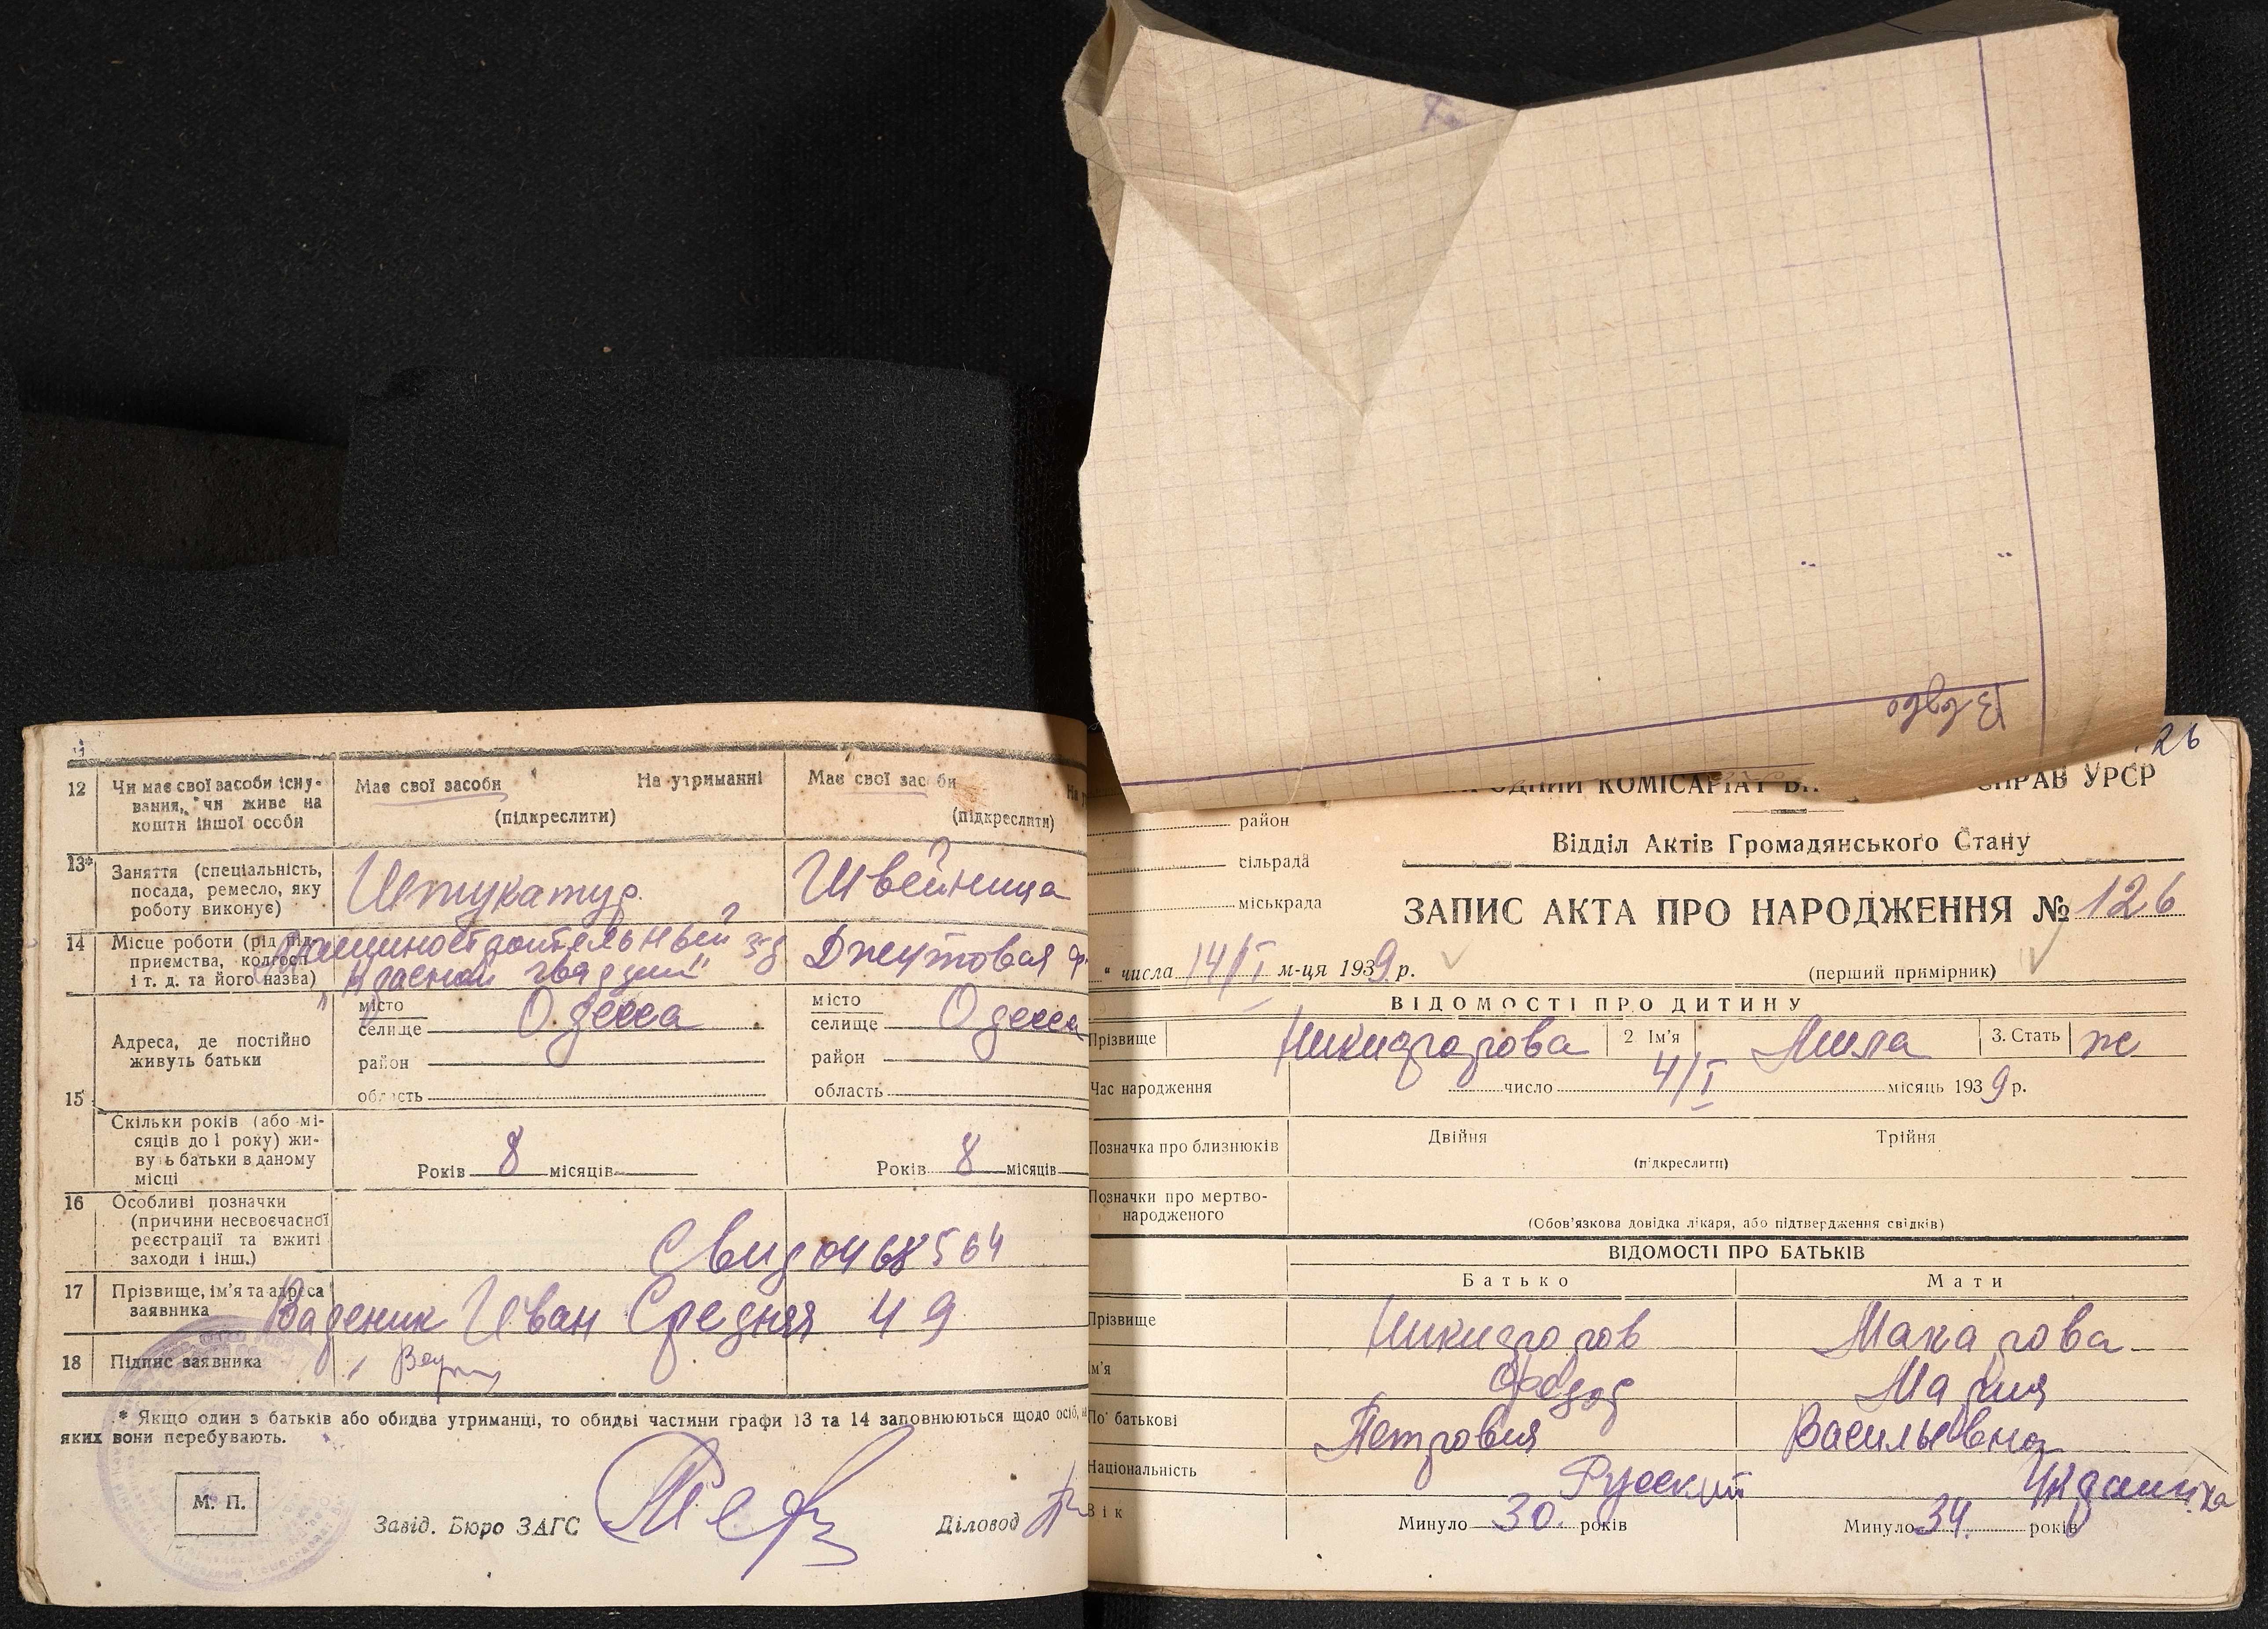 12 Чи має свої засоби існу-
вання, чи живе на
кошти іншої особи
Має свої засоби На утриманні
(підкреслити)
Має свої засоби
(підкреслити)
13* Заняття (спеціальність,
посада, ремесло, яку
роботу виконує)
Штукатур.
Швейница
14 Місце роботи (рід під-
приємства, колгосп
і т. д. та його назва)
Машиностроительный з-д
Красной гвардии"
Джутовая ф.
15 Адреса, де постійно
живуть батьки
місто
селище Одесса
район
область
місто
селище Одесса
район
область
Скільки років (або мі-
сяців до 1 року) жи-
вуть батьки в даному
місці
Років 8 місяців
Років 8 місяців
16 Особливі позначки
(причини несвоєчасної
реєстрації та вжиті
заходи і інш.)
Свид 0468564
17 Прізвище, ім'я та адреса
заявника
Ваденик Иван Средняя 49
18 Підпис заявника
* Якщо один з батьків або обидва утриманці, то обидві частини графи 13 та 14 заповнюються щодо осіб, на
яких вони перебувають.
М. П.
Завід. Бюро ЗАГС
Діловод
126
КОМІСАРІАТ СПРАВ УРСР
район
Відділ Актів Громадянського Стану
сільрада
міськрада
ЗАПИС АКТА ПРО НАРОДЖЕННЯ № 126
" числа 14/I м-ця 1939 р.
(перший примірник)
ВІДОМОСТІ ПРО ДИТИНУ
Прізвище Никифорова 2 Ім'я Мила 3. Стать ж
Час народження число 4/I місяць 1939 р.
Позначка про близнюків Двійня Трійня
(підкреслити)
Позначки про мертво-
народженого
(Обов'язкова довідка лікаря, або підтвердження свідків)
ВІДОМОСТІ ПРО БАТЬКІВ
Батько Мати
Прізвище Никифоров Макарова
Ім'я Федор Мария
По батькові Петрович Васильевна
Національність Русский Украинка
Вік Минуло 30. років Минуло 34. років